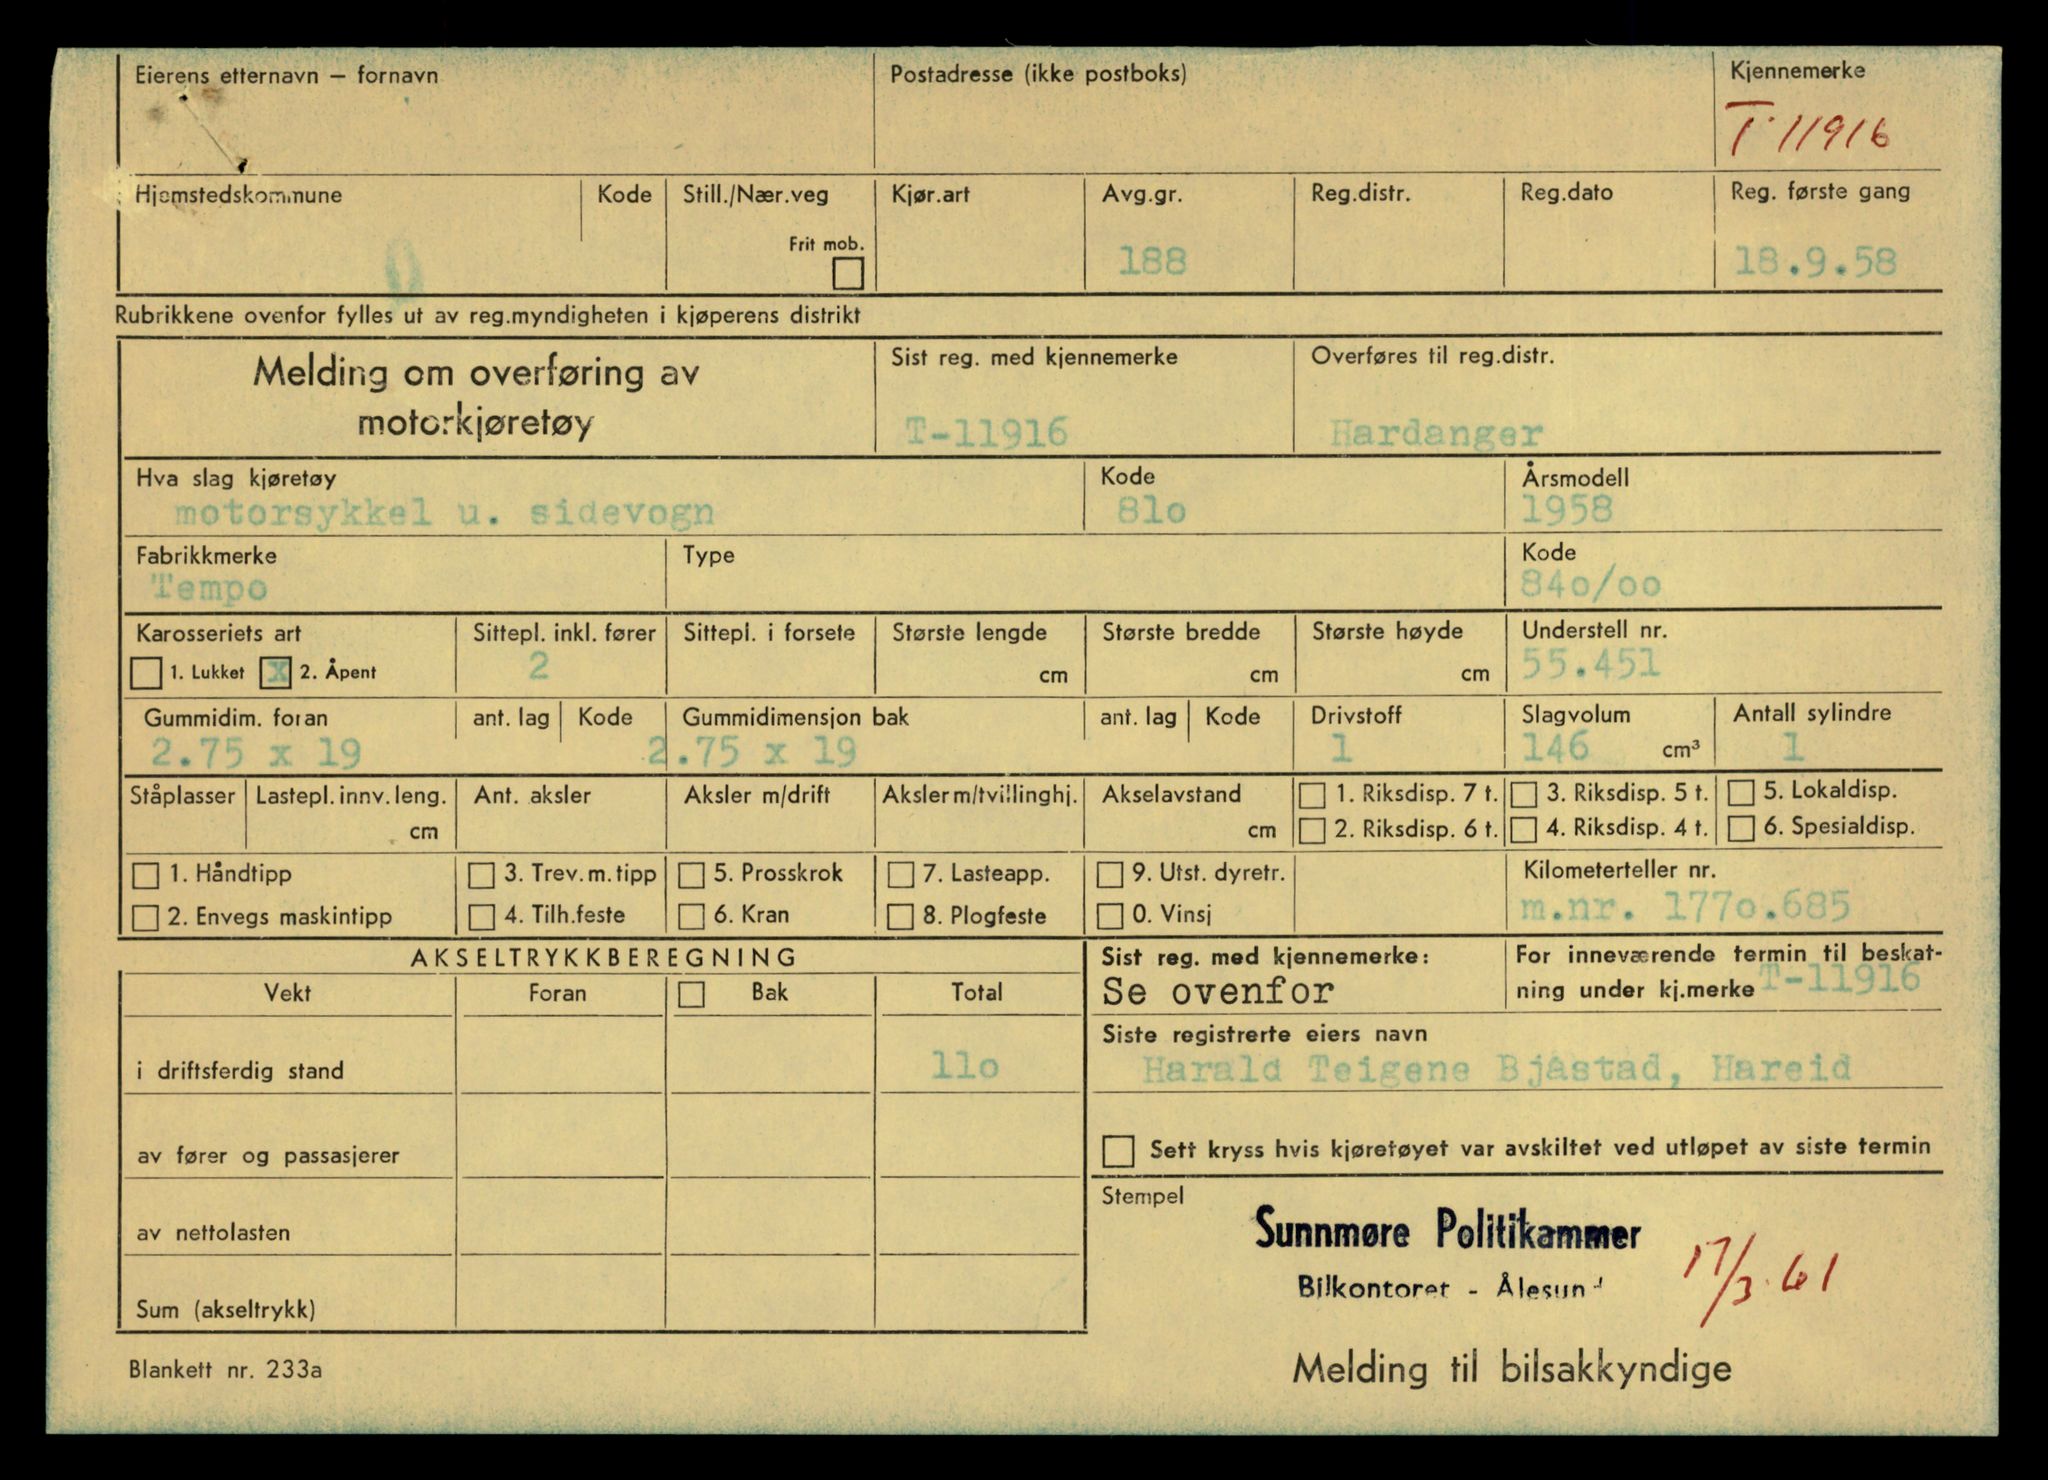 Eierens etternavn – fornavn Postadresse (ikke postboks) Kjennemerke
T-11916
Hjemstedskommune Kode Still./Nær.veg Kjør.art Avg.gr. Reg.distr. Reg.dato Reg. første gang
Frit mob. 188 18.9.58
Rubrikkene ovenfor fylles ut av reg.myndigheten i kjøperens distrikt
Melding om overføring av Sist reg. med kjennemerke Overføres til reg.distr.
motorkjøretøy T-11916 Hardanger
Hva slag kjøretøy Kode Årsmodell
motorsykkel u. sidevogn 81o 1958
Fabrikkmerke Type Kode
Tempo 84o/oo
Karosseriets art Sittepl. inkl. fører Sittepl. i forsete Største lengde Største bredde Største høyde Understell nr.
1. Lukket x 2. Åpent 2 cm cm cm 55.451
Gummidim. foran ant. lag Kode Gummidimensjon bak ant. lag Kode Drivstoff Slagvolum Antall sylindre
2.75 x 19 2.75 x 19 1 146 cm³ 1
Ståplasser Lastepl. innv. leng. Ant. aksler Aksler m/drift Aksler m/tvillinghj. Akselavstand 1. Riksdisp. 7 t. 3. Riksdisp. 5 t. 5. Lokaldisp.
cm cm 2. Riksdisp. 6 t. 4. Riksdisp. 4 t. 6. Spesialdisp.
1. Håndtipp 3. Trev.m.tipp 5. Prosskrok 7. Lasteapp. 9. Utst. dyretr. Kilometerteller nr.
2. Envegs maskintipp 4. Tilh.feste 6. Kran 8. Plogfeste 0. Vinsj m.nr. 177o.685
AKSELTRYKKBEREGNING Sist reg. med kjennemerke: For inneværende termin til beskat-
Vekt Foran Bak Total Se ovenfor ning under kj.merke T-11916
Siste registrerte eiers navn
i driftsferdig stand 11o Harald Teigene Bjåstad, Hareid
av fører og passasjerer Sett kryss hvis kjøretøyet var avskiltet ved utløpet av siste termin
Stempel
av nettolasten Sunnmøre Politikammer
Bilkontoret - Ålesund 17/3.61
Sum (akseltrykk)
Blankett nr. 233a Melding til bilsakkyndige